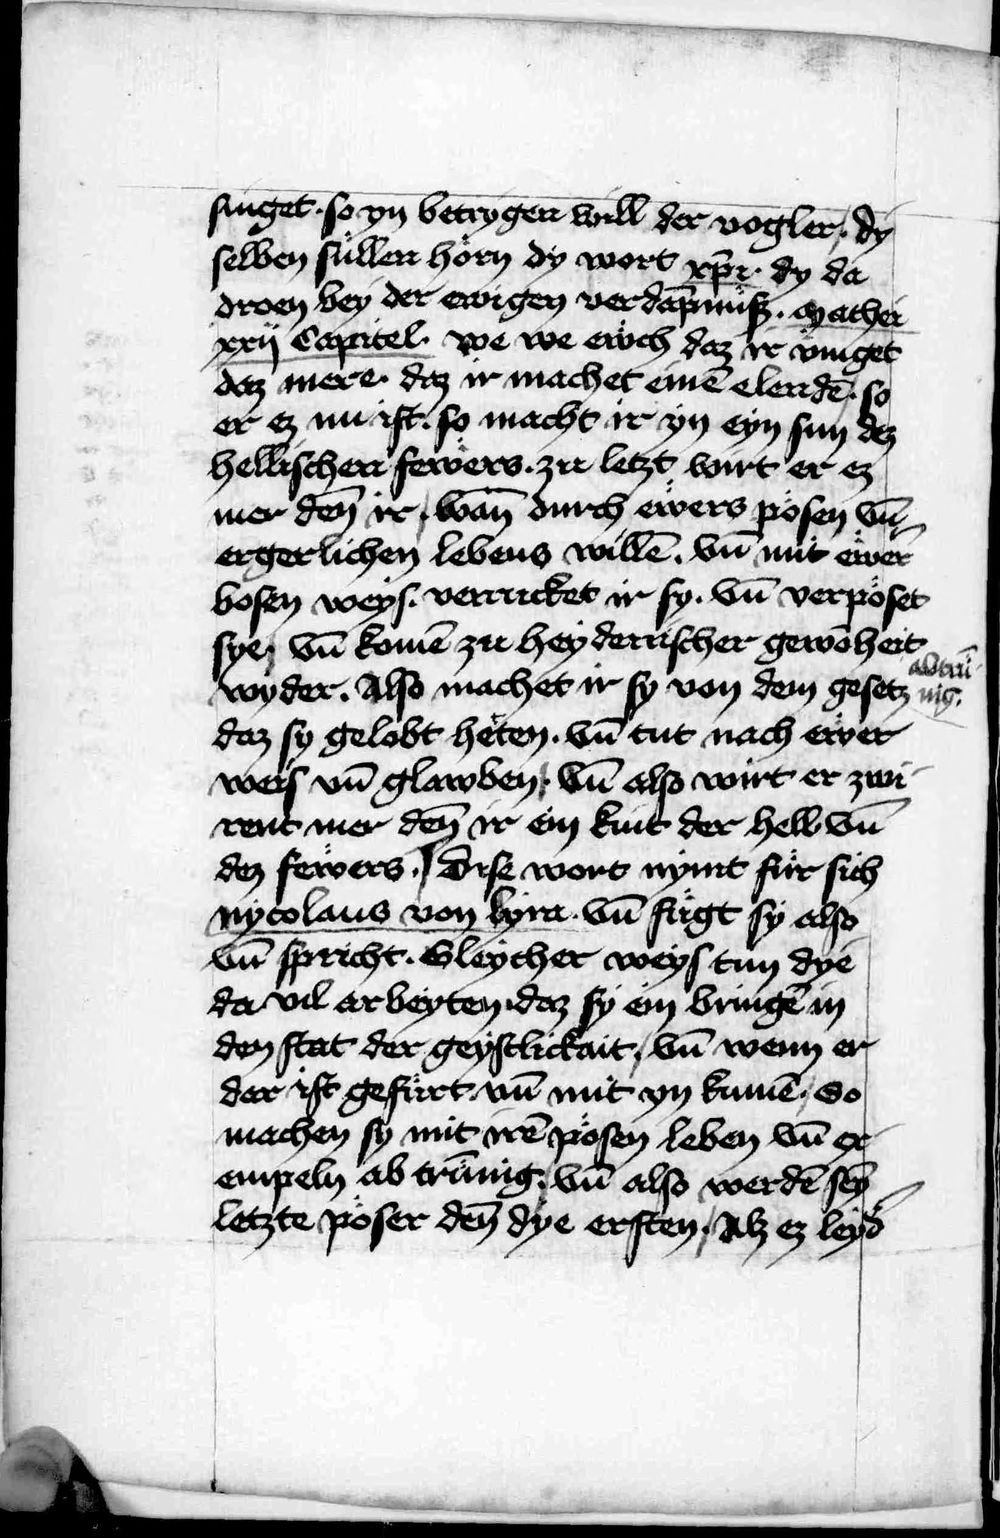 singet. so yn betrygen will der vogler / dy
selben süllen hörn dy wort xp̄i. dy da
droen bey der ewigen verdāpnüß. Mathei
xxiij Capitel. we we eẅch daz ir vm̄get
daz mere. daz ir machet einē elendē / so
er ez nu ist. so macht ir yn eyn sun dez
hellischen feẅers. zu letzt wirt er ez
mer den̄ ir / wan̄ durch eẅers pösen vn̄
ergerlichen lebens willē. vn̄ mit eẅer
bosen weys. verrucket ir sy. vn̄ verpöset
sye / vn̄ komē zu heydenischer gewōheit
wyder. Also machet ir sy von dem gesetz
abtrü-
nig.
daz sy gelobt heten. vn̄ tut nach eẅer
weis vn̄ glawben / vn̄ also wirt er zwi-
rent mer den̄ ir ein kint der hell vn̄
dez feẅers. / Dise wort nymt für sich
nycolaus von lyra. vn̄ fügt sy also
vn̄ spricht. Gleycher weys tun dye
da vil arbeyten. daz sy ein bringē in
den stat der geystlickait / vn̄ wenn er
dar ist gefürt. vn̄ mit yn kumē / So
machen sy mit irē pösen leben vn̄ ex-
empeln ab trün̄ig / vn̄ also werdē sey
letzte pöser den̄ dye ersten / Alz ez leyd̄